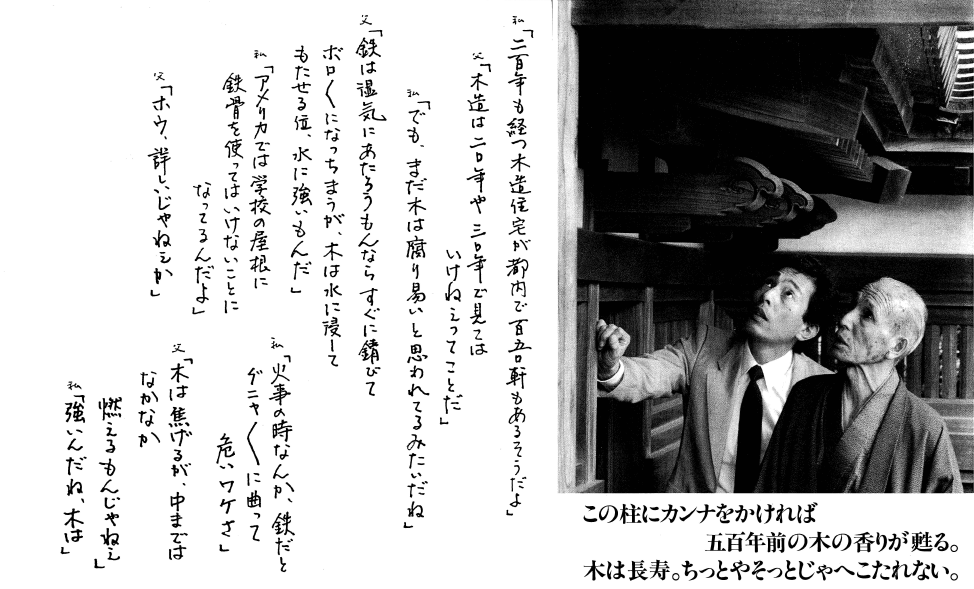 私「二百年も経つ木造住宅が都内で百五〇軒もあるそうだよ」
父「木造は二〇年や三〇年で見ては
いけねぇってことだ」
私「でも、まだ木は腐り易いと思われてるみたいだね」
父「鉄は湿気にあたろうもんならすぐに錆びて
ボロ〱になっちまうが、木は水に浸して
もたせる位、水に強いもんだ」
私「アメリカでは学校の屋根に
鉄骨を使ってはいけないことに
なってるんだよ」
父「ホウ、詳しいじゃねぇか」
私「火事の時なんか、鉄だと
グニャ〱に曲って
危いワケさ」
父「木は焦げるが、中までは
なかなか
燃えるもんじゃねぇ」
私「強いんだね、木は」
この柱にカンナをかければ
五百年前の木の香りが甦る。
木は長寿。ちっとやそっとじゃへこたれない。